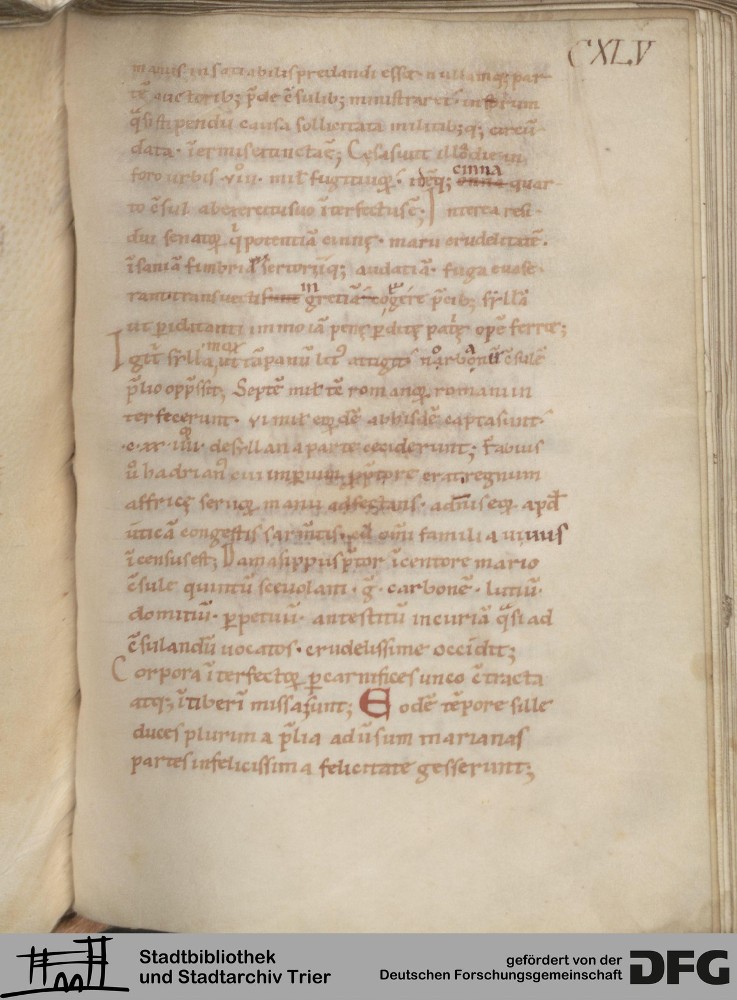 CXLV
manus insatiabilis predandi esset nullamq; par
te auctorib; p̄de c̄sulib; ministraret in forum
q̄si stipendii causa sollicitata militib; q; circū
data · īermis extincta ē; Cesa sunt illo die in
foro urbis ·viii· mil̄
cinna
quar
to c̄sul ab exercitu suo īterfectus ē; Interea resi
dui senatoꝝ q̇ potentiā cinnę · marii crudelitatē ·
īsaniā fimbrię sertoriiq; audatiā · fuga euase
rant transuecti in gretiā coegere p̄cib; syllā
ut periclitanti immo iā penę perditę patrię opē ferret;
Igit̄ sylla mox ut cāpanū lit' attigit norbanū c̄sulē
p̄lio opp̄ssit; Septē mil̄ tē romanoꝝ romani in
terfecerunt · vi mil̄ eoꝝdē ab hisdē capta sunt ·
·c·xx·iiii· de syllana parte ceciderunt; Fabius
ū hadrian' cui imperium p̄ptore erat regnum
affricę seruoꝝ manu adfectans · a dn̄is eoꝝ apd̄
uticā congestis sarmtis cū om̄i familia uiuus
īcensus est; Damasippus p̄tor īcentore mario
c̄sule quintū sceuolam · g̃ · carbonē · lutiū ·
domitiū · perpetuū · antestitū in curiā q̄si ad
c̄sulandū uocatos · crudelissime occidit;
Corpora īterfectoꝝ per carnifices unco c̄tracta
atq; ī tiberī missa sunt; Eodē tēpore sille
duces plurima p̄lia aduersum marianas
partes infelicissima felicitate gesserunt;
Stadtbibliothek
und Stadtarchiv Trier
gefördert von der
Deutschen Forschungsgemeinschaft
DFG